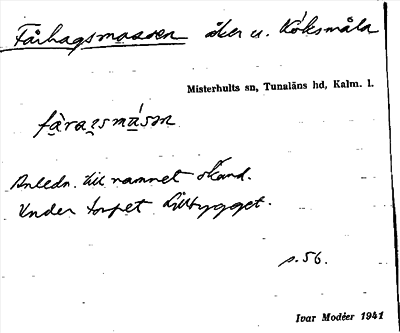 Fårhagsmossen åker u. Köksmåla
Misterhults sn, Tunaläns hd, Kalm. l.
fàraʒsmásən
Anledn. till namnet okänd.
Under torpet Lillbygget.
s. 56.
Ivar Modéer 1941